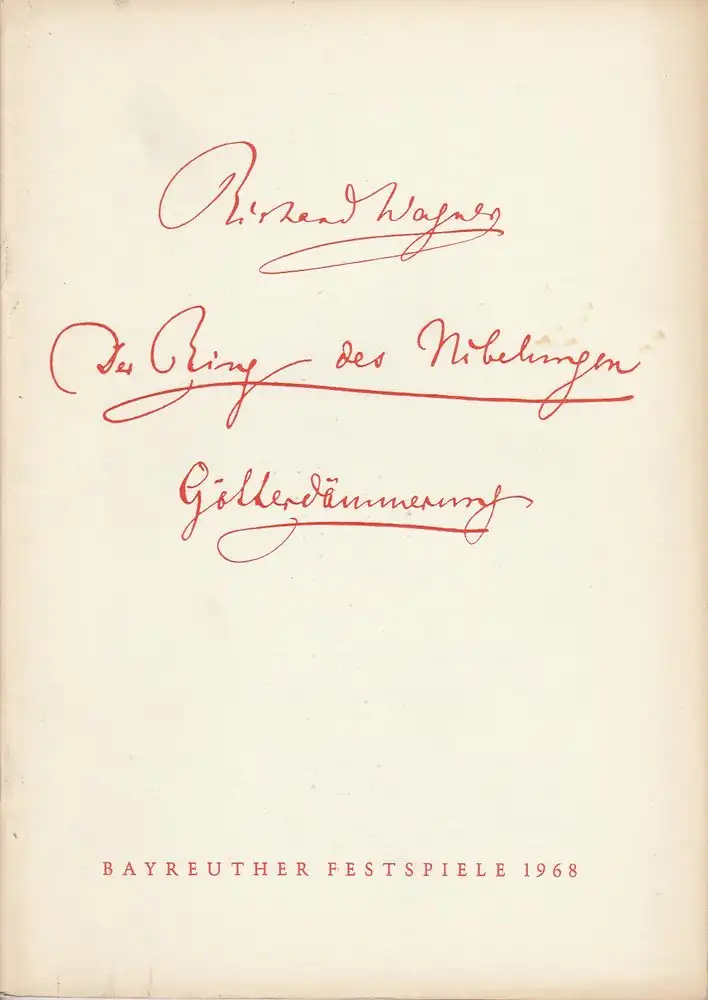 Richard Wagner
Der Ring des Nibelungen
Götterdämmerung
BAYREUTHER FESTSPIELE 1968